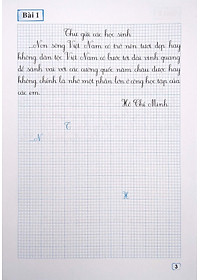 Bài 1
Thư gửi các học sinh
Non sông Việt Nam có trở nên tươi đẹp hay
không, dân tộc Việt Nam có bước tới đài vinh quang
để sánh vai với các cường quốc năm châu được hay
không, chính là nhờ một phần lớn ở công học tập của
các em.
Hồ Chí Minh
T
N
H
3